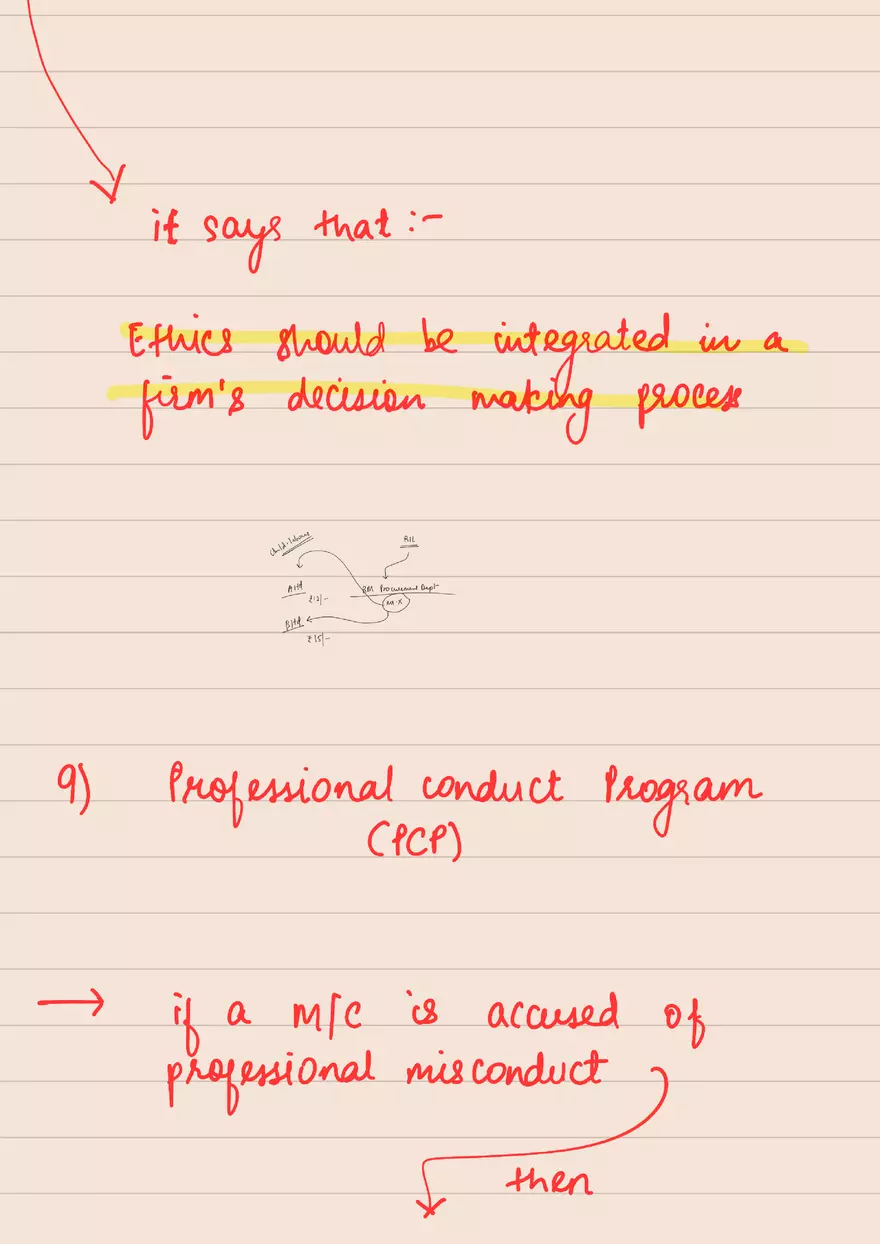 it says that :-
Ethics should be integrated in a
firm's decision making process
Child-labour
RIL
RM Procurement Dept
₹12/-
M-X
₹15/-
9) Professional conduct Program
(PCP)
→ if a M/C is accused of
professional misconduct
then